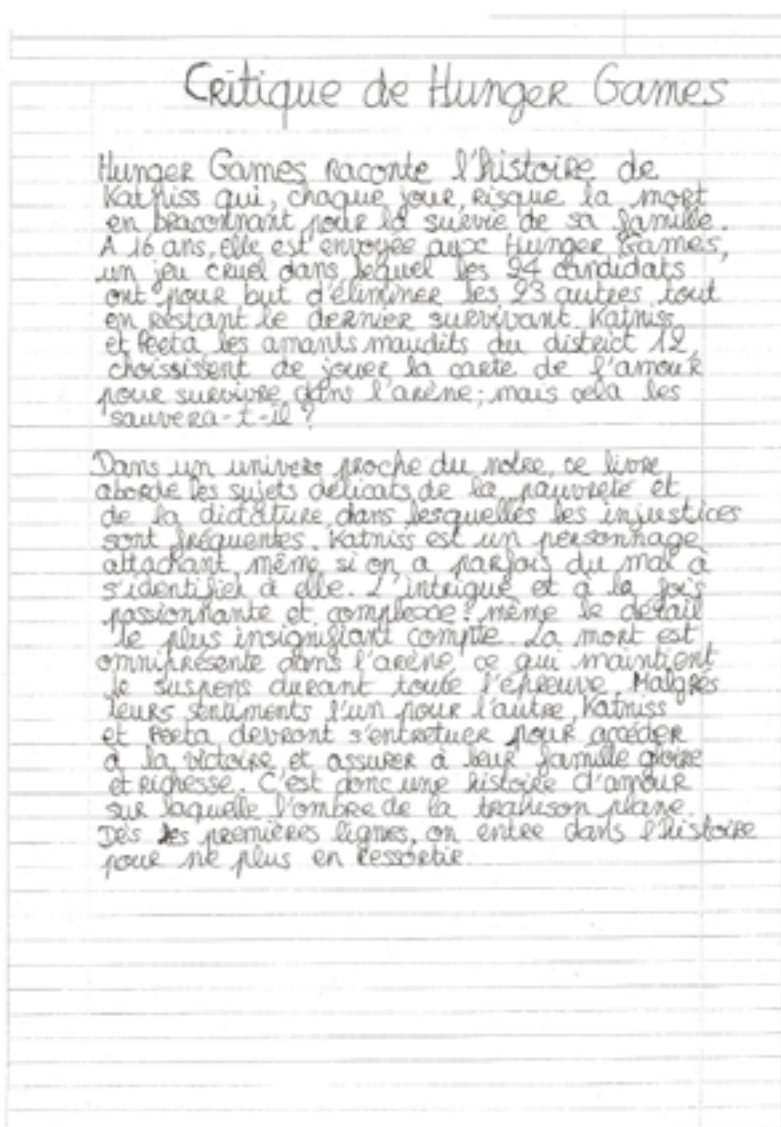 Critique de Hunger Games
Hunger Games raconte l'histoire de
Katniss qui, chaque jour, risque la mort
en braconnant pour la survie de sa famille.
A 16 ans, elle est envoyée aux Hunger Games,
un jeu cruel dans lequel les 24 candidats
ont pour but d'éliminer les 23 autres tout
en restant le dernier survivant. Katniss
et Peeta les amants maudits du district 12,
choissisent de jouer la carte de l'amour
pour survivre dans l'arène; mais cela les
sauvera-t-il ?
Dans un univers proche du notre, ce livre
aborde les sujets délicats de la pauvreté et
de la dictature dans lesquelles les injustices
sont fréquentes. Katniss est un personnage
attachant même si on a parfois du mal à
s'identifier à elle. L'intrigue et à la fois
passionnante et complexe: même le détail
le plus insignifiant compte. La mort est
omniprésente dans l'arène, ce qui maintient
le suspens durant toute l'épreuve. Malgrés
leurs sentiments l'un pour l'autre, Katniss
et Peeta devront s'entretuer pour accéder
à la victoire et assurer à leur famille gloire
et richesse. C'est donc une histoire d'amour
sur laquelle l'ombre de la trahison plane.
Dès les premières lignes, on entre dans l'histoire
pour ne plus en ressortir.